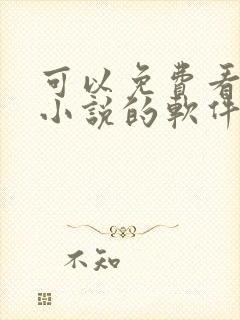 可以免費看
小說的軟件
不知